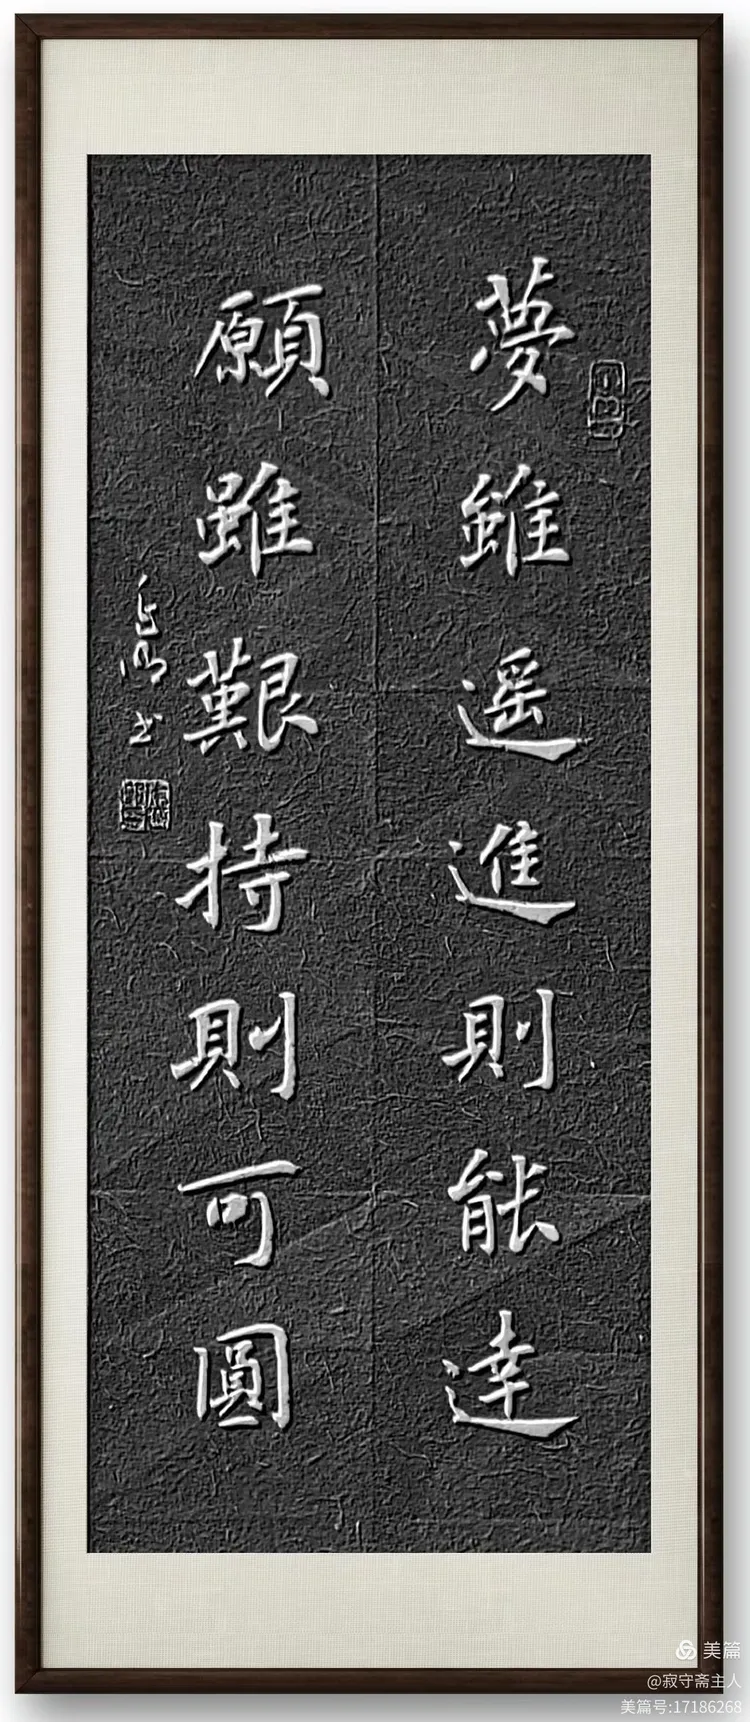 夢雖遥進則能達
願雖艱持則可圓
美篇
@寂守斋主人
美篇号:17186268